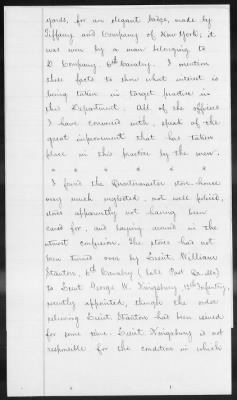 yards, for an elegant badge, made by
Tiffany and Company of New York; it
was won by a man belonging to
D Company, 6th Cavalry. I mention
these facts to show what interest is
being taken in target practice in
this Department. All of the officers
I have conversed with, speak of the
great improvement that has taken
place in this practice by the men.
* * * * * *
I found the Quartermaster store-house
very much neglected, not well policed,
stores apparently not having been
cared for, and laying around in the
utmost confusion. The stores had not
been turned over by Lieut. William
Stanton, 6th Cavalry, (late Post Qr. Mr.)
to Lieut George W. Kingsbury 12th Infantry,
recently appointed, though the order
relieving Lieut. Stanton had been issued
for some time. Lieut. Kingsbury is not
responsible for the condition in which